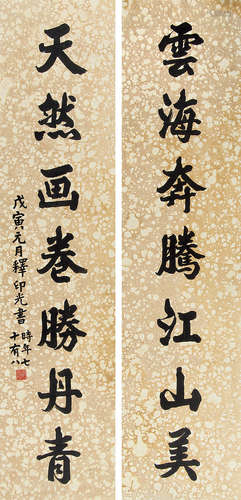 雲海奔騰江山美
天然画卷勝丹青
戊寅元月釋印光書
時年七
十有八